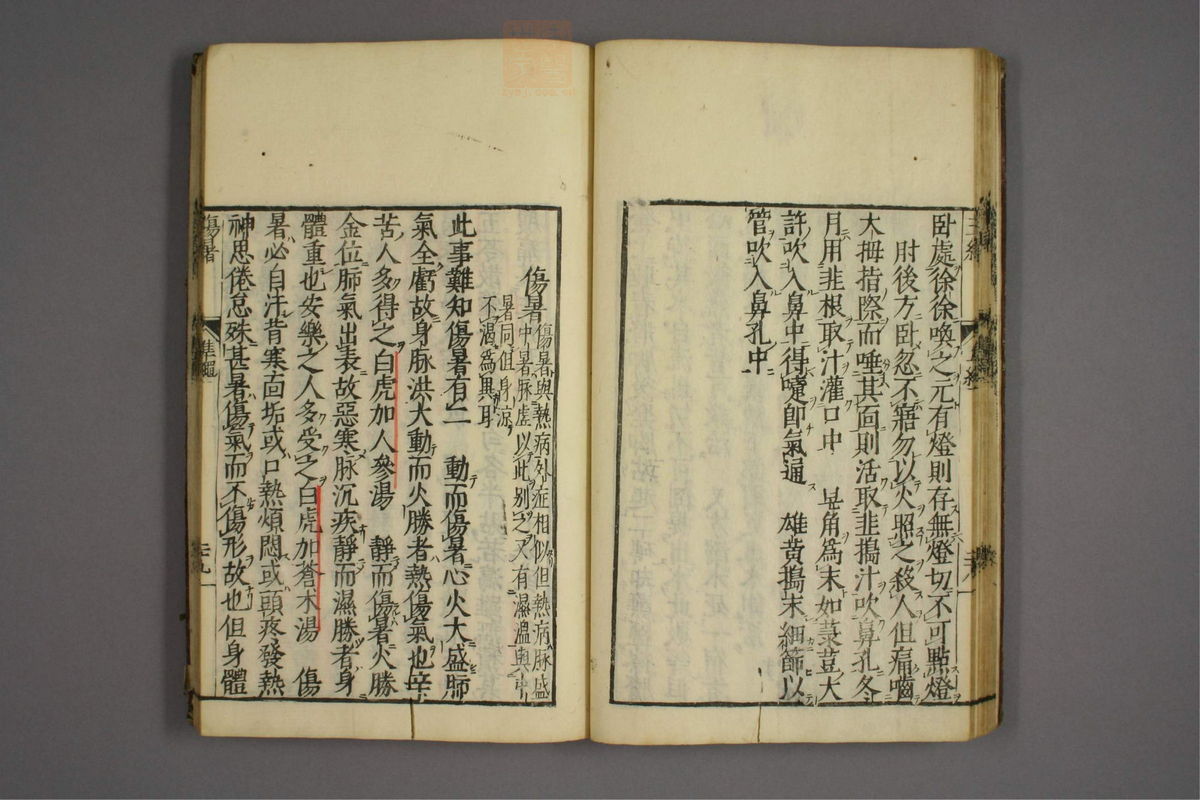 卧處徐徐喚之元有燈則存無燈切不可點燈
肘後方卧忽不寤勿以火照之殺人但痛嚙
大拇指際而唾其面則活取韭搗汁吹鼻孔冬
月用韭根取汁灌口中 皂角爲末如菉荳大
許吹入鼻中得嚏卽氣通 雄黄搗末細篩以
管吹入鼻孔中
傷暑
傷暑與熱病外症相似但熱病脉盛
中暑脉虛以此别之又有濕溫與中
暑同但身凉
不渴爲異耳
此事難知傷暑有二 動而傷暑心火大盛肺
氣全虧故身脉洪大動而火勝者熱傷氣也辛
苦人多得之白虎加人參湯 靜而傷暑火勝
金位肺氣出表故惡寒脉沉疾靜而濕勝者身
體重也安樂之人多受之白虎加蒼朮湯 傷
暑必自汗背寒面垢或口熱煩悶或頭疼發熱
神思倦怠殊甚暑傷氣而不傷形故也但身體
傷暑